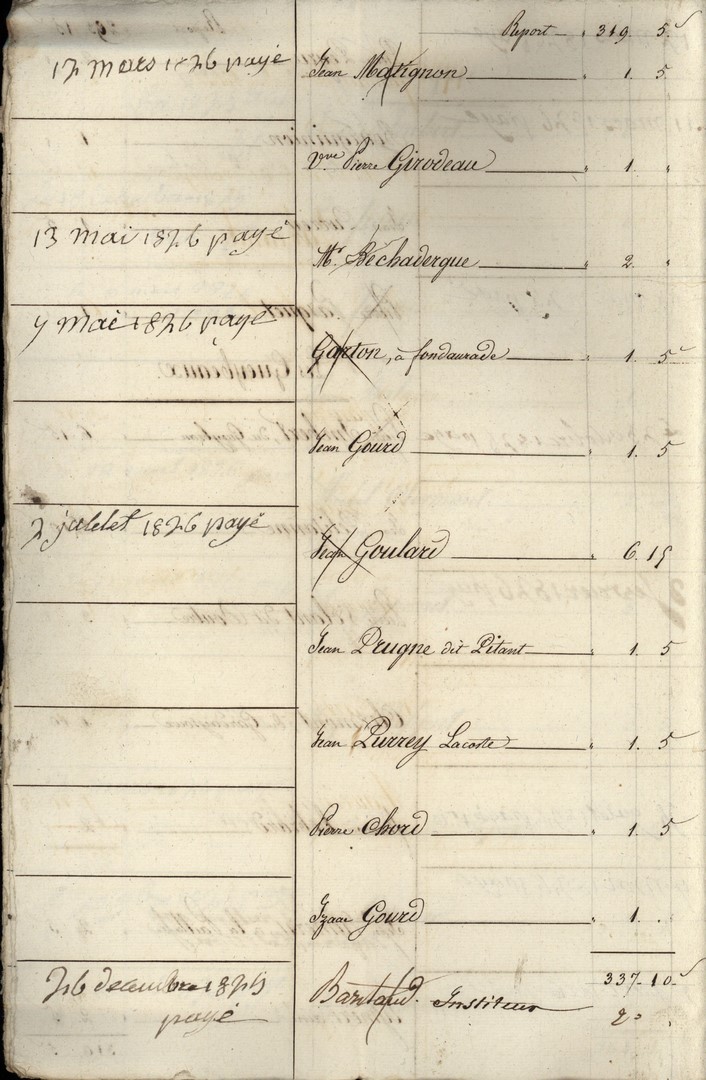 Report 319. 5
12 mars 1826 payé Jean Matignon 1. 5
Vve Pierre Girodeau 1.
13 mai 1826 payé Mr Béchadergue 2.
7 mai 1826 payé Garton, à fondaurade 1. 5
Jean Gourd 1. 5
2 juillet 1826 payé Jean Goulard 6. 15
Jean Prugne dit Pitant 1. 5
Jean Purrey Lacoste 1. 5
Pierre Chord 1. 5
Izaac Gourd 1.
337. 10
26 decembre 1825 Instituteur 2
payé